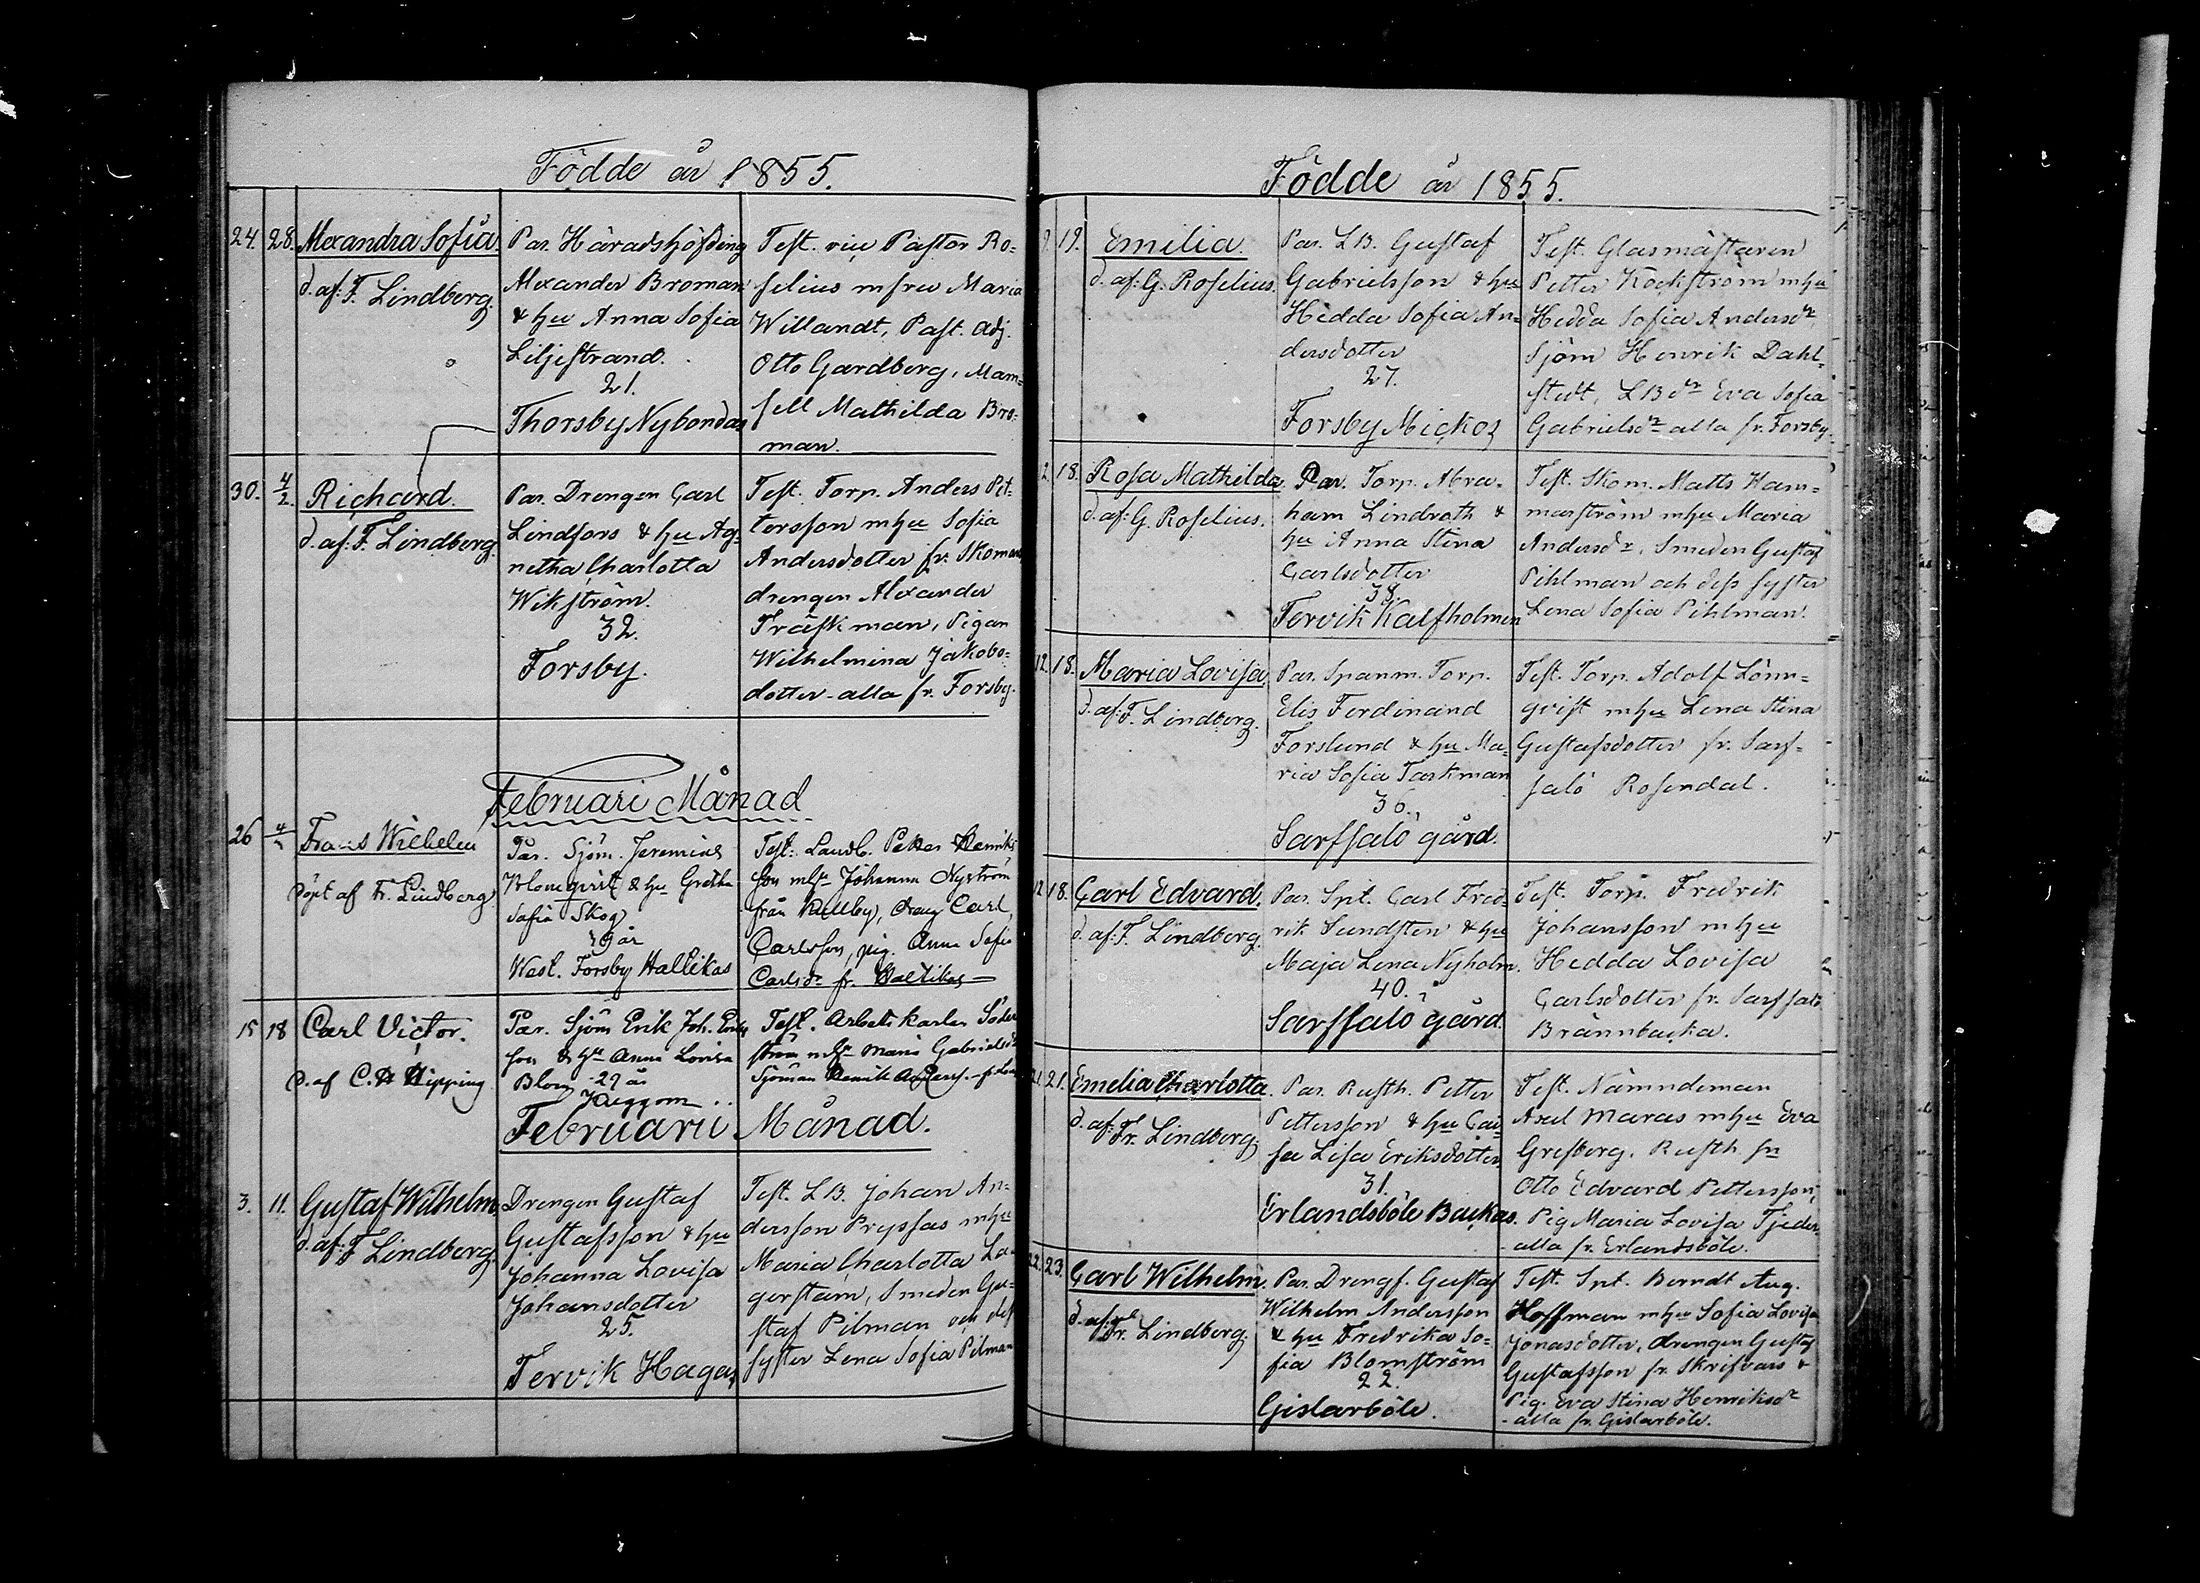 Födde år 1855.
24. 28. Alexandra Sofia
d. af: F. Lindberg.
Par. Häradshöfding
Alexander Broman
& hu Anna Sofia
Liljestrand.
21.
Thorsby Nybondas
Test. vic Pastor Ro=
selius m fru Maria
Willandt, Past. Adj.
Otto Gardberg, Mam=
sell Mathilda Bro=
man.
30. 4/2. Richard.
d. af: F. Lindberg.
Par. Drengen Carl
Lindfors & hu Ag=
netha Charlotta
Wikström.
32.
Forsby.
Test. Torp. Anders Pet=
tersson m hu Sofia
Andersdotter fr. Skomars
drengen Alexander
Träskman, Pigan
Wilhelmina Jakobs=
dotter - alla fr. Forsby.
Februari Månad
26 Frans Wilhelm
döpt af Fr. Lindberg
Par. Sjöm. Jeremias
Blomqvist & hu Gretha
Sofia Skog
år
Wesl. Forsby Hallikas
Test: Landb. Petter Henriks
son m hu Johanna Nyström
från Kullby, dräng Carl
Carlsson, pig. Anna Sofia
Carlsdr fr. Hallikas
15 18 Carl Victor.
d. af C. H Hipping
Par. Sjöm Erik Joh. Eriks
son & hu Anna Lovisa
Blom 29 år
Kuggom
Test. Arbetskarlen Söder
ström m hu Maria Gabrielsdr
Sjöman Henrik
Februarii Månad.
3. 11. Gustaf Wilhelm
d. af: F Lindberg.
Drengen Gustaf
Gustafsson & hu
Johanna Lovisa
Johansdotter
25.
Tervik Hagas
Test. L B. Johan An=
dersson Pryssas m hu
Maria Charlotta La=
gerstam, Smeden Gu=
staf Pilman och dess
syster Lena Sofia Pilman
Födde år 1855.
9. 19. Emilia.
d. af: G. Roselius.
Par. L B. Gustaf
Gabrielsson & hu
Hedda Sofia An=
dersdotter
27.
Forsby Mickos
Test. Glasmästaren
Petter Köckström m hu
Hedda Sofia Andersdr,
Sjöm Henrik Dahl=
stedt, L B dr Eva Sofia
Gabrielsdr alla fr. Forsby.
2. 18. Rosa Mathilda.
d. af: G. Roselius.
Par. Torp. Abra=
ham Lindroth &
hu Anna Stina
Carlsdotter
38.
Tervik Kalfholmen
Test. Skom. Matts Ham=
marström m hu Maria
Andersdr, Smeden Gustaf
Pihlman och dess syster
Lena Sofia Pihlman.
12. 18. Maria Lovisa.
d. af: F. Lindberg.
Par. Spanm. Torp.
Elis Ferdinand
Forslund & hu Ma=
ria Sofia Taskman
36.
Sarfsalö gård.
Test. Torp. Adolf Lönn=
qvist m hu Lena Stina
Gustafsdotter fr. Sarf=
salö Rosendal.
12 18. Carl Edvard.
d. af: F. Lindberg.
Par. Spt. Carl Fred=
rik Sundsten & hu
Maja Lena Nyholm.
40.
Sarfsalö gård.
Test. Torp. Fredrik
Johansson m hu
Hedda Lovisa
Carlsdotter fr. Sarfsalö
Brännbacka.
21. 21. Emelia Charlotta.
d. af: Fr. Lindberg.
Par. Rusth. Petter
Pettersson & hu Cai=
sa Lisa Eriksdotter
31.
Erlandsböle Backas.
Test. Nämndeman
Axel Maras m hu Eva
Grefberg. Rusth. sn
Otto Edvard Pettersson,
Pig Maria Lovisa Tjeder
- alla fr. Erlandsböle.
22. 23. Carl Wilhelm.
d. af: Fr. Lindberg.
Par. Drengf. Gustaf
Wilhelm Andersson
& hu Fredrika So=
fia Blomström
22.
Gislarböle.
Test. Spt. Berndt Aug.
Hoffman m hu Sofia Lovisa
Jonasdotter, drengen Gustaf
Gustafsson fr. Skrifvars &
Pig. Eva Stina Henriksdr
- alla fr. Gislarböle.